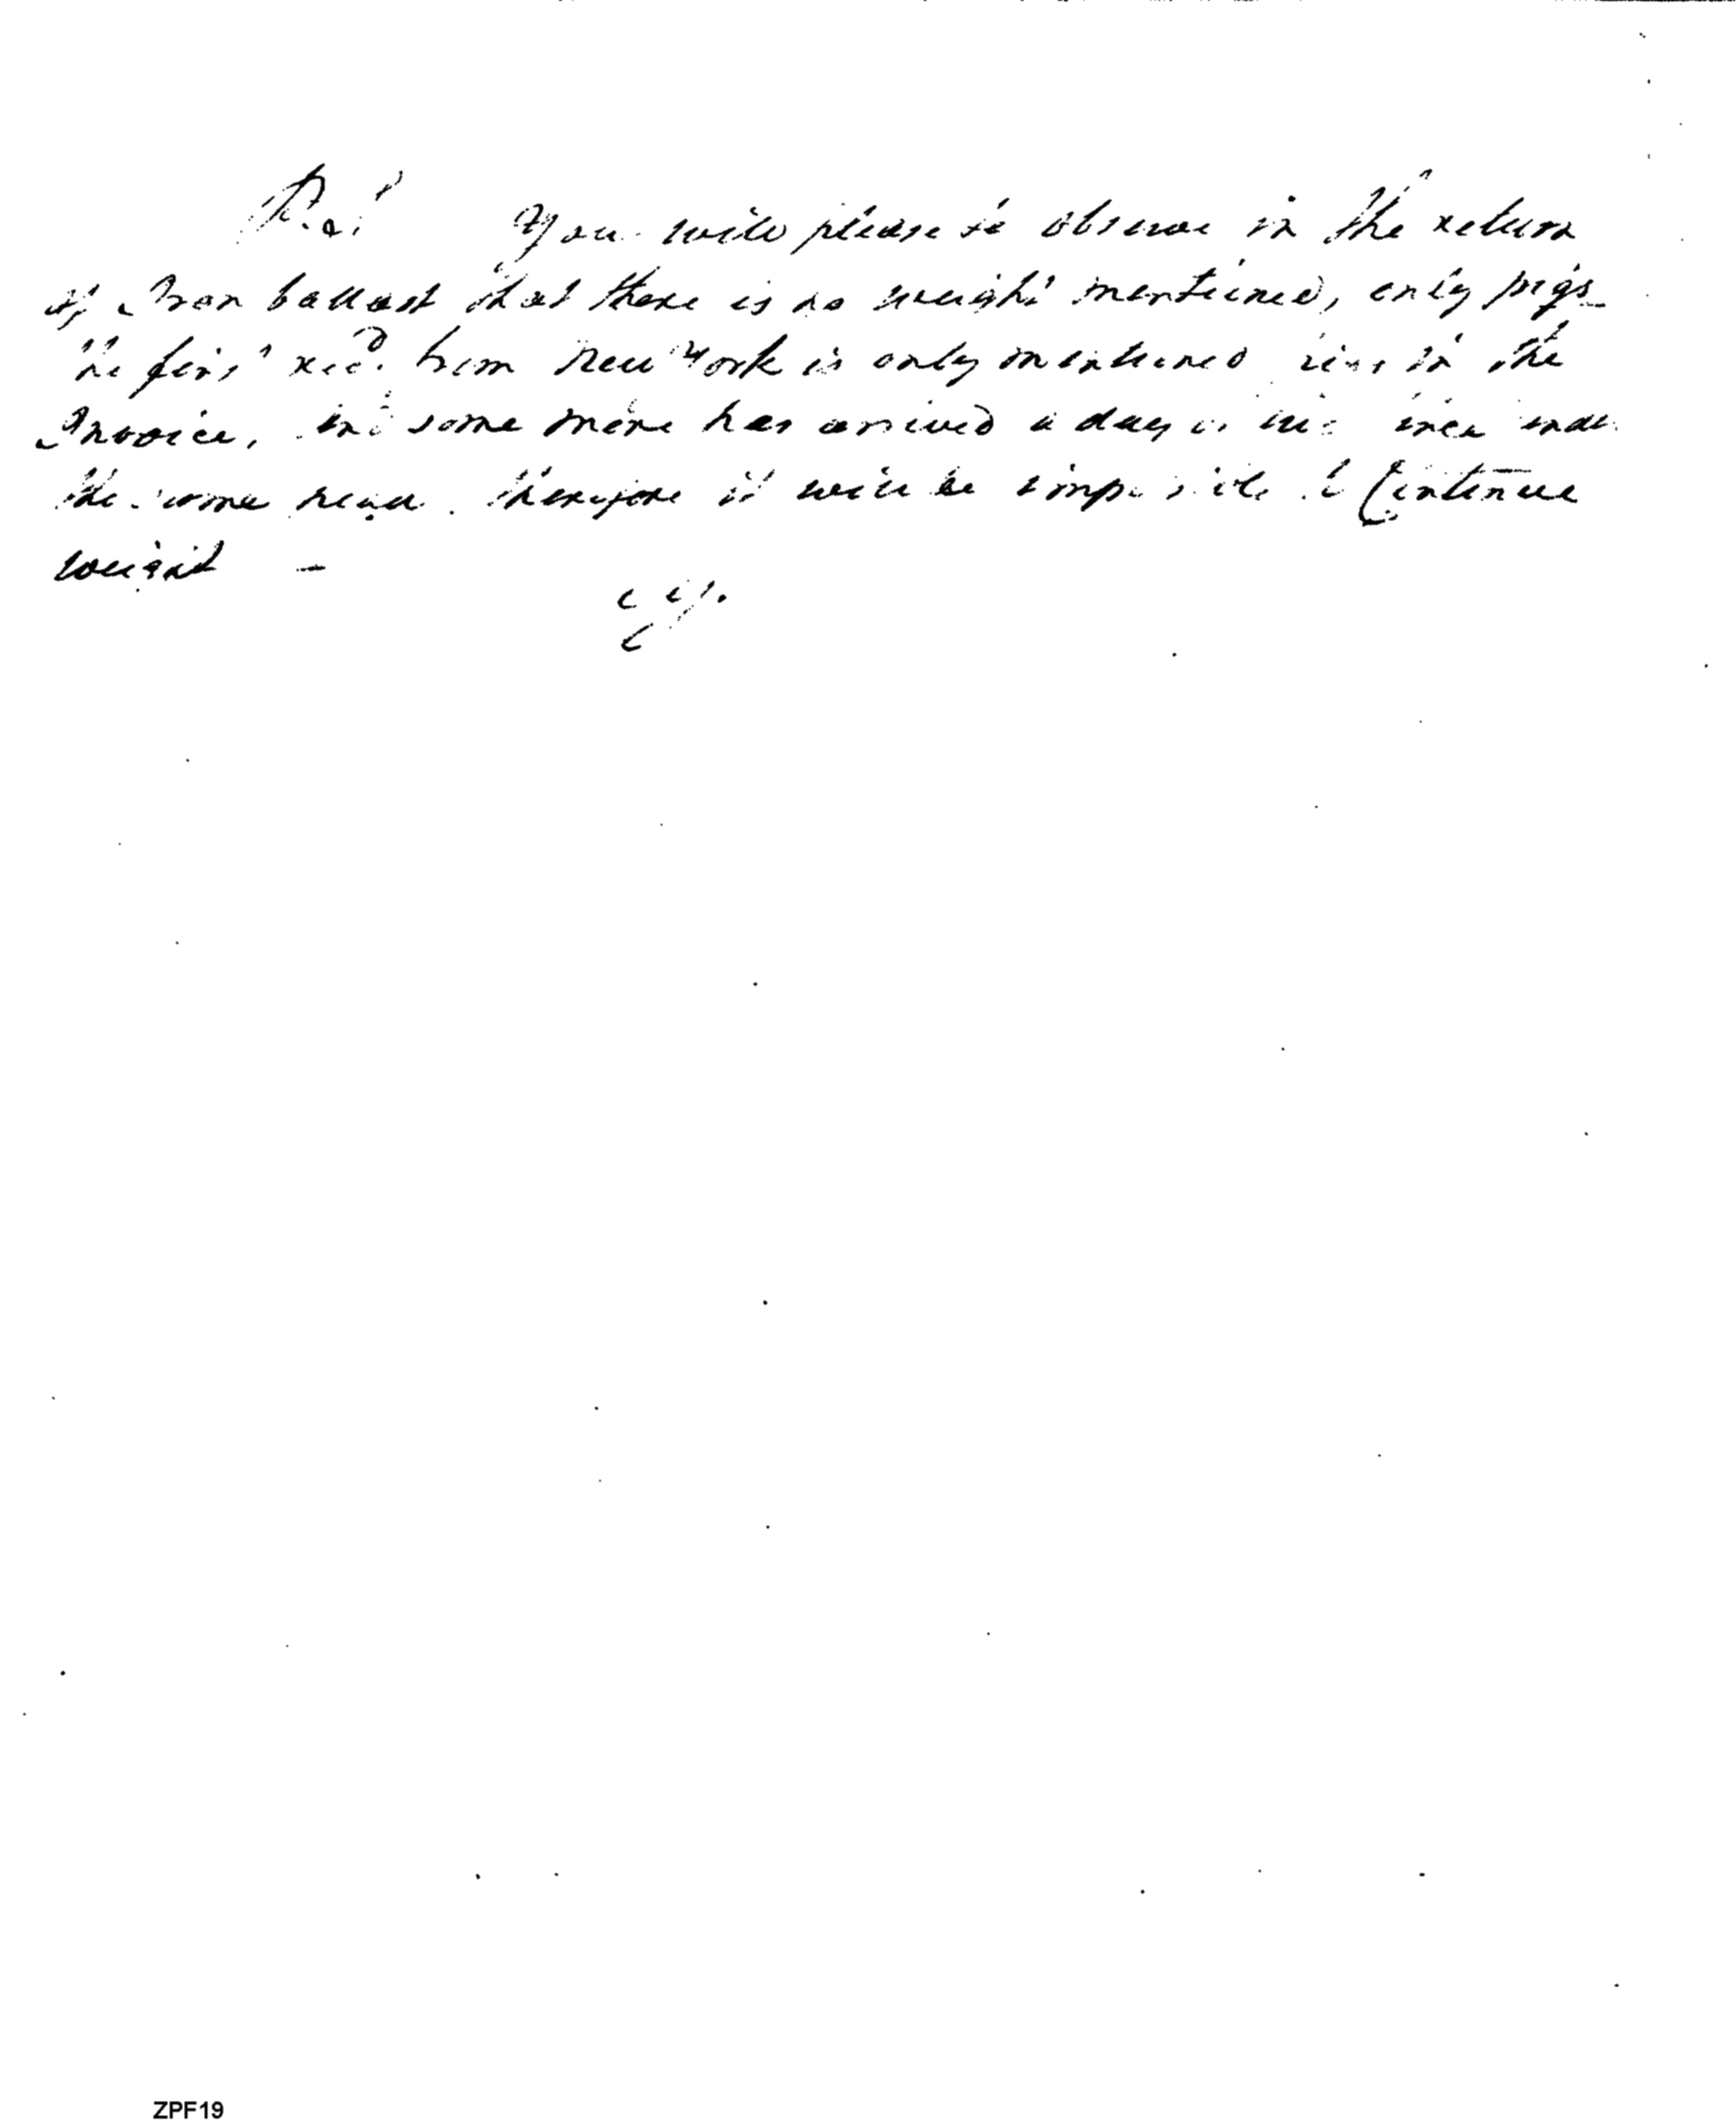 You will please to observe in the return
of Iron ballast that there is no weight mentioned, only pigs
the first recd. from New York is only mentioned in the
Invoice, and some more has arrived a day or two since
the same therefore it will be to Continue
weight —
ZPF19